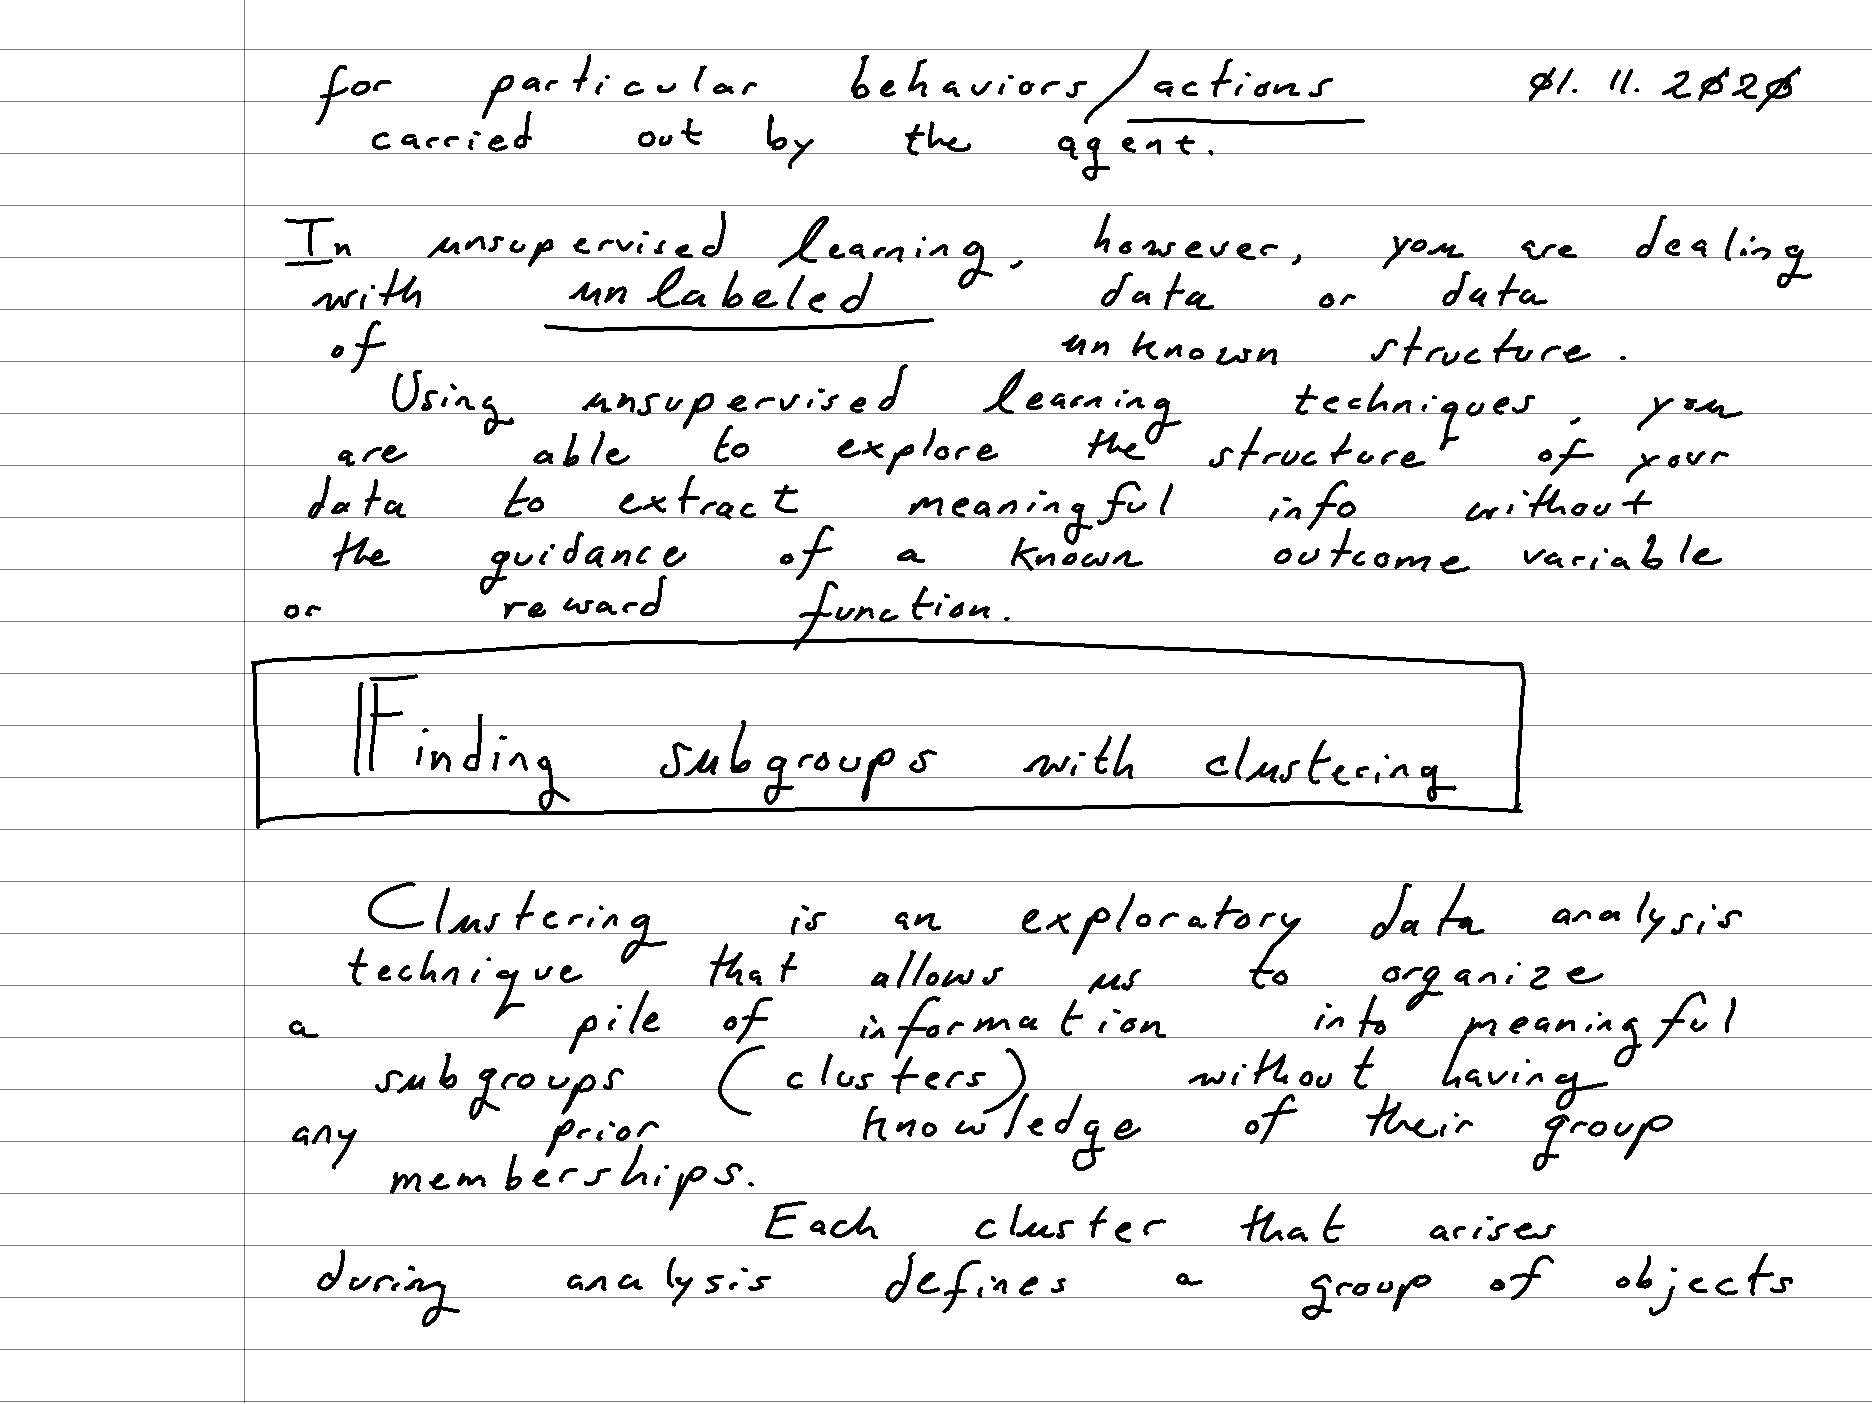 for particular behaviors/actions 01.11.2020
carried out by the agent.
In unsupervised learning, however, you are dealing
with unlabeled data or data
of unknown structure.
Using unsupervised learning techniques, you
are able to explore the structure of your
data to extract meaningful info without
the guidance of a known outcome variable
or reward function.
Finding subgroups with clustering
Clustering is an exploratory data analysis
technique that allows us to organize
a pile of information into meaningful
subgroups (clusters) without having
any prior knowledge of their group
memberships.
Each cluster that arises
during analysis defines a group of objects